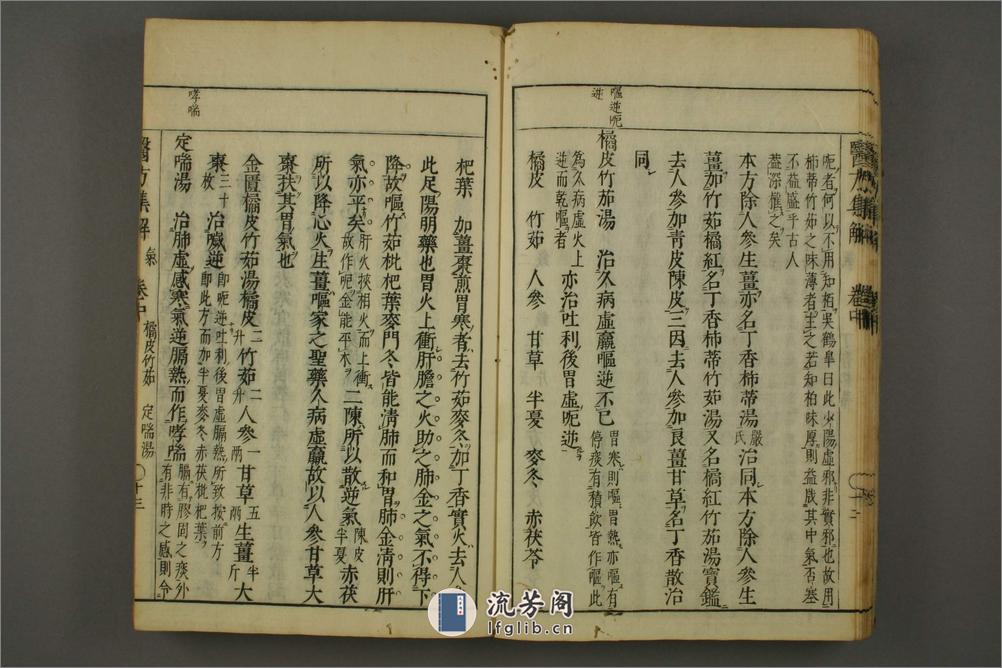 呃者何以不用知栢吳鶴皐曰此少陽虛邪非實邪也故用
柿蒂竹茹之味薄者主之若知柏味厚則益戕其中氣否塞
不益盛乎古人
蓋深權之矣
本方除人參生薑亦名丁香柿蒂湯嚴氏治同本方除人參生
薑加竹茹橘紅名丁香柿蒂竹茹湯又名橘紅竹茹湯寶鑑
去人參加青皮陳皮三因去人參加良薑甘草名丁香散治
同
嘔逆呃逆
橘皮竹茹湯 治久病虛羸嘔逆不已
胃寒則嘔胃熱亦嘔有
停痰有積飲皆作嘔此
為久病虛火上
逆而乾嘔者
亦治吐利後胃虛呃逆
橘皮 竹茹 人參 甘草 半夏 麥冬 赤茯苓
枇葉 加薑棗煎胃寒者去竹茹麥冬加丁香實火去人
此足陽明藥也胃火上衝肝膽之火助之肺金之氣不得下
降故嘔竹茹枇杷葉麥門冬皆能清肺而和胃肺金清則肝
氣亦平矣
肝火挾相火而上衝
故作呃金能平木
二陳所以散逆氣
陳皮
半夏
赤茯
所以降心火生薑嘔家之聖藥久病虛羸故以人參甘草大
棗扶其胃氣也
金匱橘皮竹茹湯橘皮二升竹茹二升人參一兩甘草五兩生薑半斤大
棗三十枚 治噦逆
即呃逆吐利後胃虛膈熱所致按前方
即此方而加半夏麥冬赤茯枇杷葉
哮喘
定喘湯 治肺虛感寒氣逆膈熱而作哮喘
膈有膠固之痰外
有非時之感則令
醫方集解 氣 卷中 橘皮竹茹 定喘湯 十三
流芳阁
lfglib.cn